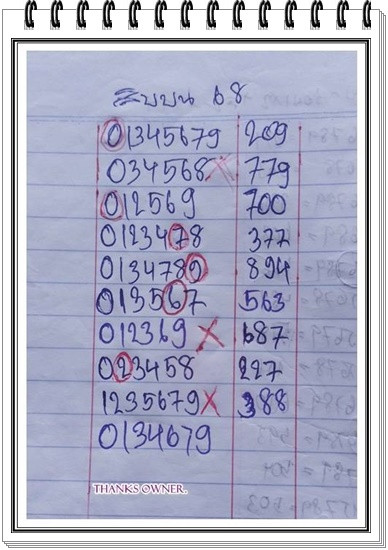 บบน 68
01345679 209
034568 X 779
012569 700
0123478 377
0134789 894
013567 563
012369 X 687
023458 227
1235679 X 388
0134679
THANKS OWNER.